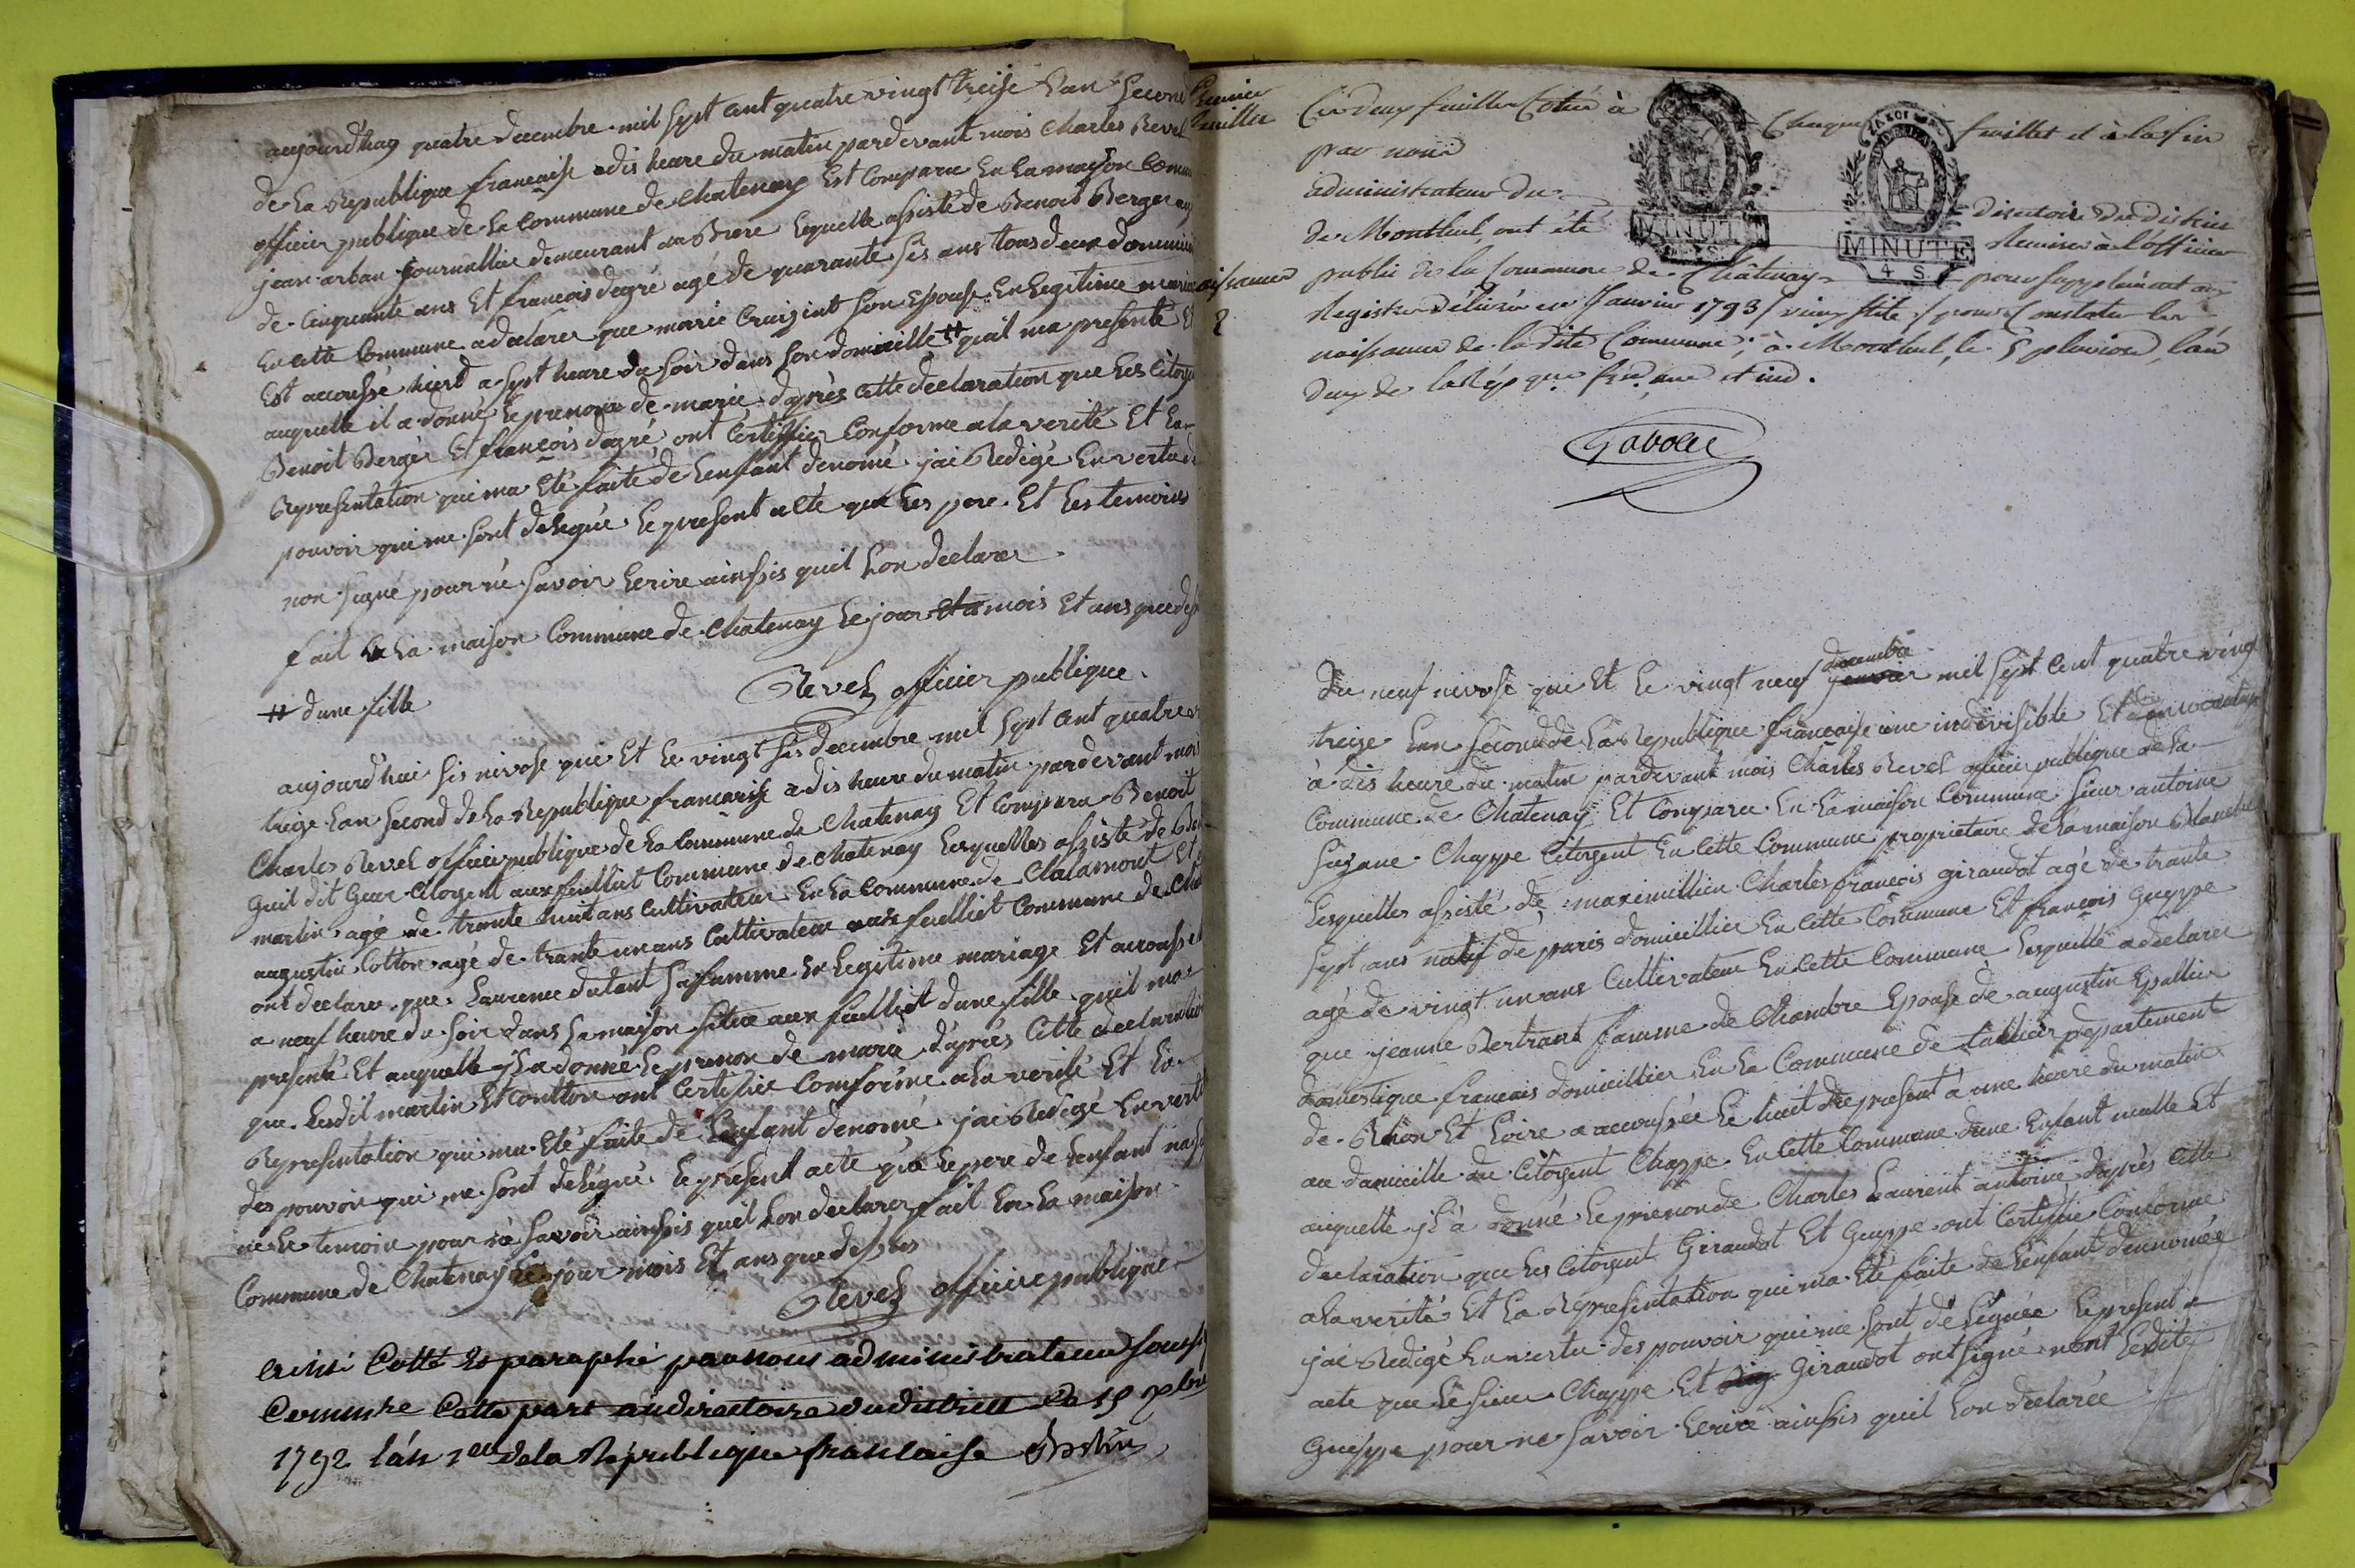 aujourdhuy quatre decembre mil sept cent quatre vingt treise Lan Second
de La Republique francaise a dis heure du matin pardevant mois Charles Revel
officier publique de La Commune de Chatenay Est Comparu En La maison Comm
jean arban journallier demeurant au lequelle assisté de Benoit Berger agé
de Cinquante ans Et francois degré agé de quarante sis ans tous deux domicili
En Cette Commune a declarer que marie son Epouse En Legitime mariag
Est accoussé hierd a sept heure du soir dans son domicille # quil ma presenté Et
auquelle il a donné Le prenom de marie daprès Cette declaration que Les Citoye
Benoit Berger Et francois degré ont Certiffier Conforme a la verité Et La
Representation qui ma Eté faite de Lenfant denomé jai Redigé En vertu de
pouvoir qui me sont delegué Le present acte que Les pere Et Les temoins
non signé pour ne savoir Ecrire ainssis quil Lon declarer
fait En La maison Commune de Chatenay Le jour mois Et ans que des
# dune fille
Revel officier publique
aujourd'hui sis nivose qui Et Le vingt sis decembre mil sept cent quatre v
treize Lan second de La Republique francaise a dis heure du matin pardevant mois
Charles Revel officier publique de La Commune de Chatenay Et Comparu Benoit
Guil dit Citoyent aux feuilliet Commune de Chatenay Lesquelles assisté de
martin agé de trante huit ans Cultivateur En La Commune de Chalamont Et
augustin Cotton agé de trante un ans Cultivateur aux feulliet Commune de Cha
ont declarer que Laurence dutant sa famme En Legitime mariage Et accoussé
a neuf heure du soir dans La maison aux feulliet dune fille quil ma
presenté Et auquelle jl a donné Le prenom de marie daprès Cette declaration
que Lesdit martin Et Coutton ont Certiffier Comforme a La verité Et La
Representation qui ma Eté faite de Lenfant denomé jai Redigé En vertu
des pouvoir qui me sont delégué Le present acte que Le pere de Lenfant
ne Le temoin pour né savoir ainssis quil Lon declarer fait En La maison
Commune de Chatenay Les jour mois Et ans que dessus
Revel officier publique
ainsi Cotté et paraphé par nous administrateur
Cette part au directoire du district Ce 15
1792 lan 1er de la République francaise
Premier
feuillet
Naissances
2
Ces deux feuillets Cotés à Chaque feuillet et à la fin
par nous
administrateur du directoire du district
de Montluel, ont été Remises à l'officier
public de la Commune de Châtenay pour supplément aux
Registres délivrés en Janvier 1793 / vieux stile / pour Constater les
naissances de la dite Commune; à Montluel, le 5 pluviose, lan
deux de la Rép que frse, une et ind.
MINUTE
4 S.
MINUTE
4 S.
Du neuf nivose qui Et Le vingt neuf decembre mil sept Cent quatre vingt
treize Lan second de La Republique francaise une indivisible Et
à dis heure du matin pardevant mois Charles Revel officier publique de La
Commune de Chatenay Et Comparu En La maison Commune sieur antoine
Suzane Chappe Citoyent En Cette Commune proprietaire de La maison Blanche
Lesquelles assisté de maximillien Charles francois giraudot agé de trante
sept ans natif de paris domicillier En Cette Commune Et francois Gueppe
agé de vingt un ans Cultivateur En Cette Commune Lesquelle a declarer
que jeanne Bertrant famme de Chambre Epouse de augustin Epallier
domestique francais domicillier En La Commune de departement
de Rhone Et Loire a accoussée Le huit du present à une heure du matin
au domicille du Citoyent Chappe En Cette Commune dune Enfant malle Et
auquelle jl à donné Le prenon de Charles Laurent antoine daprès Cette
declaration que Les Citoyent Giraudot Et Gueppe ont Certiffié Conforme
a La verité Et La Representation qui ma Eté faite de Lenfant dennomée
jai Redigé En vertu des pouvoir qui me sont délégués Le present
acte que Le sieur Chappe Et Giraudot ont signé non Ledite
Gueppe pour ne savoir Ecrire ainssis quil Lon declarée